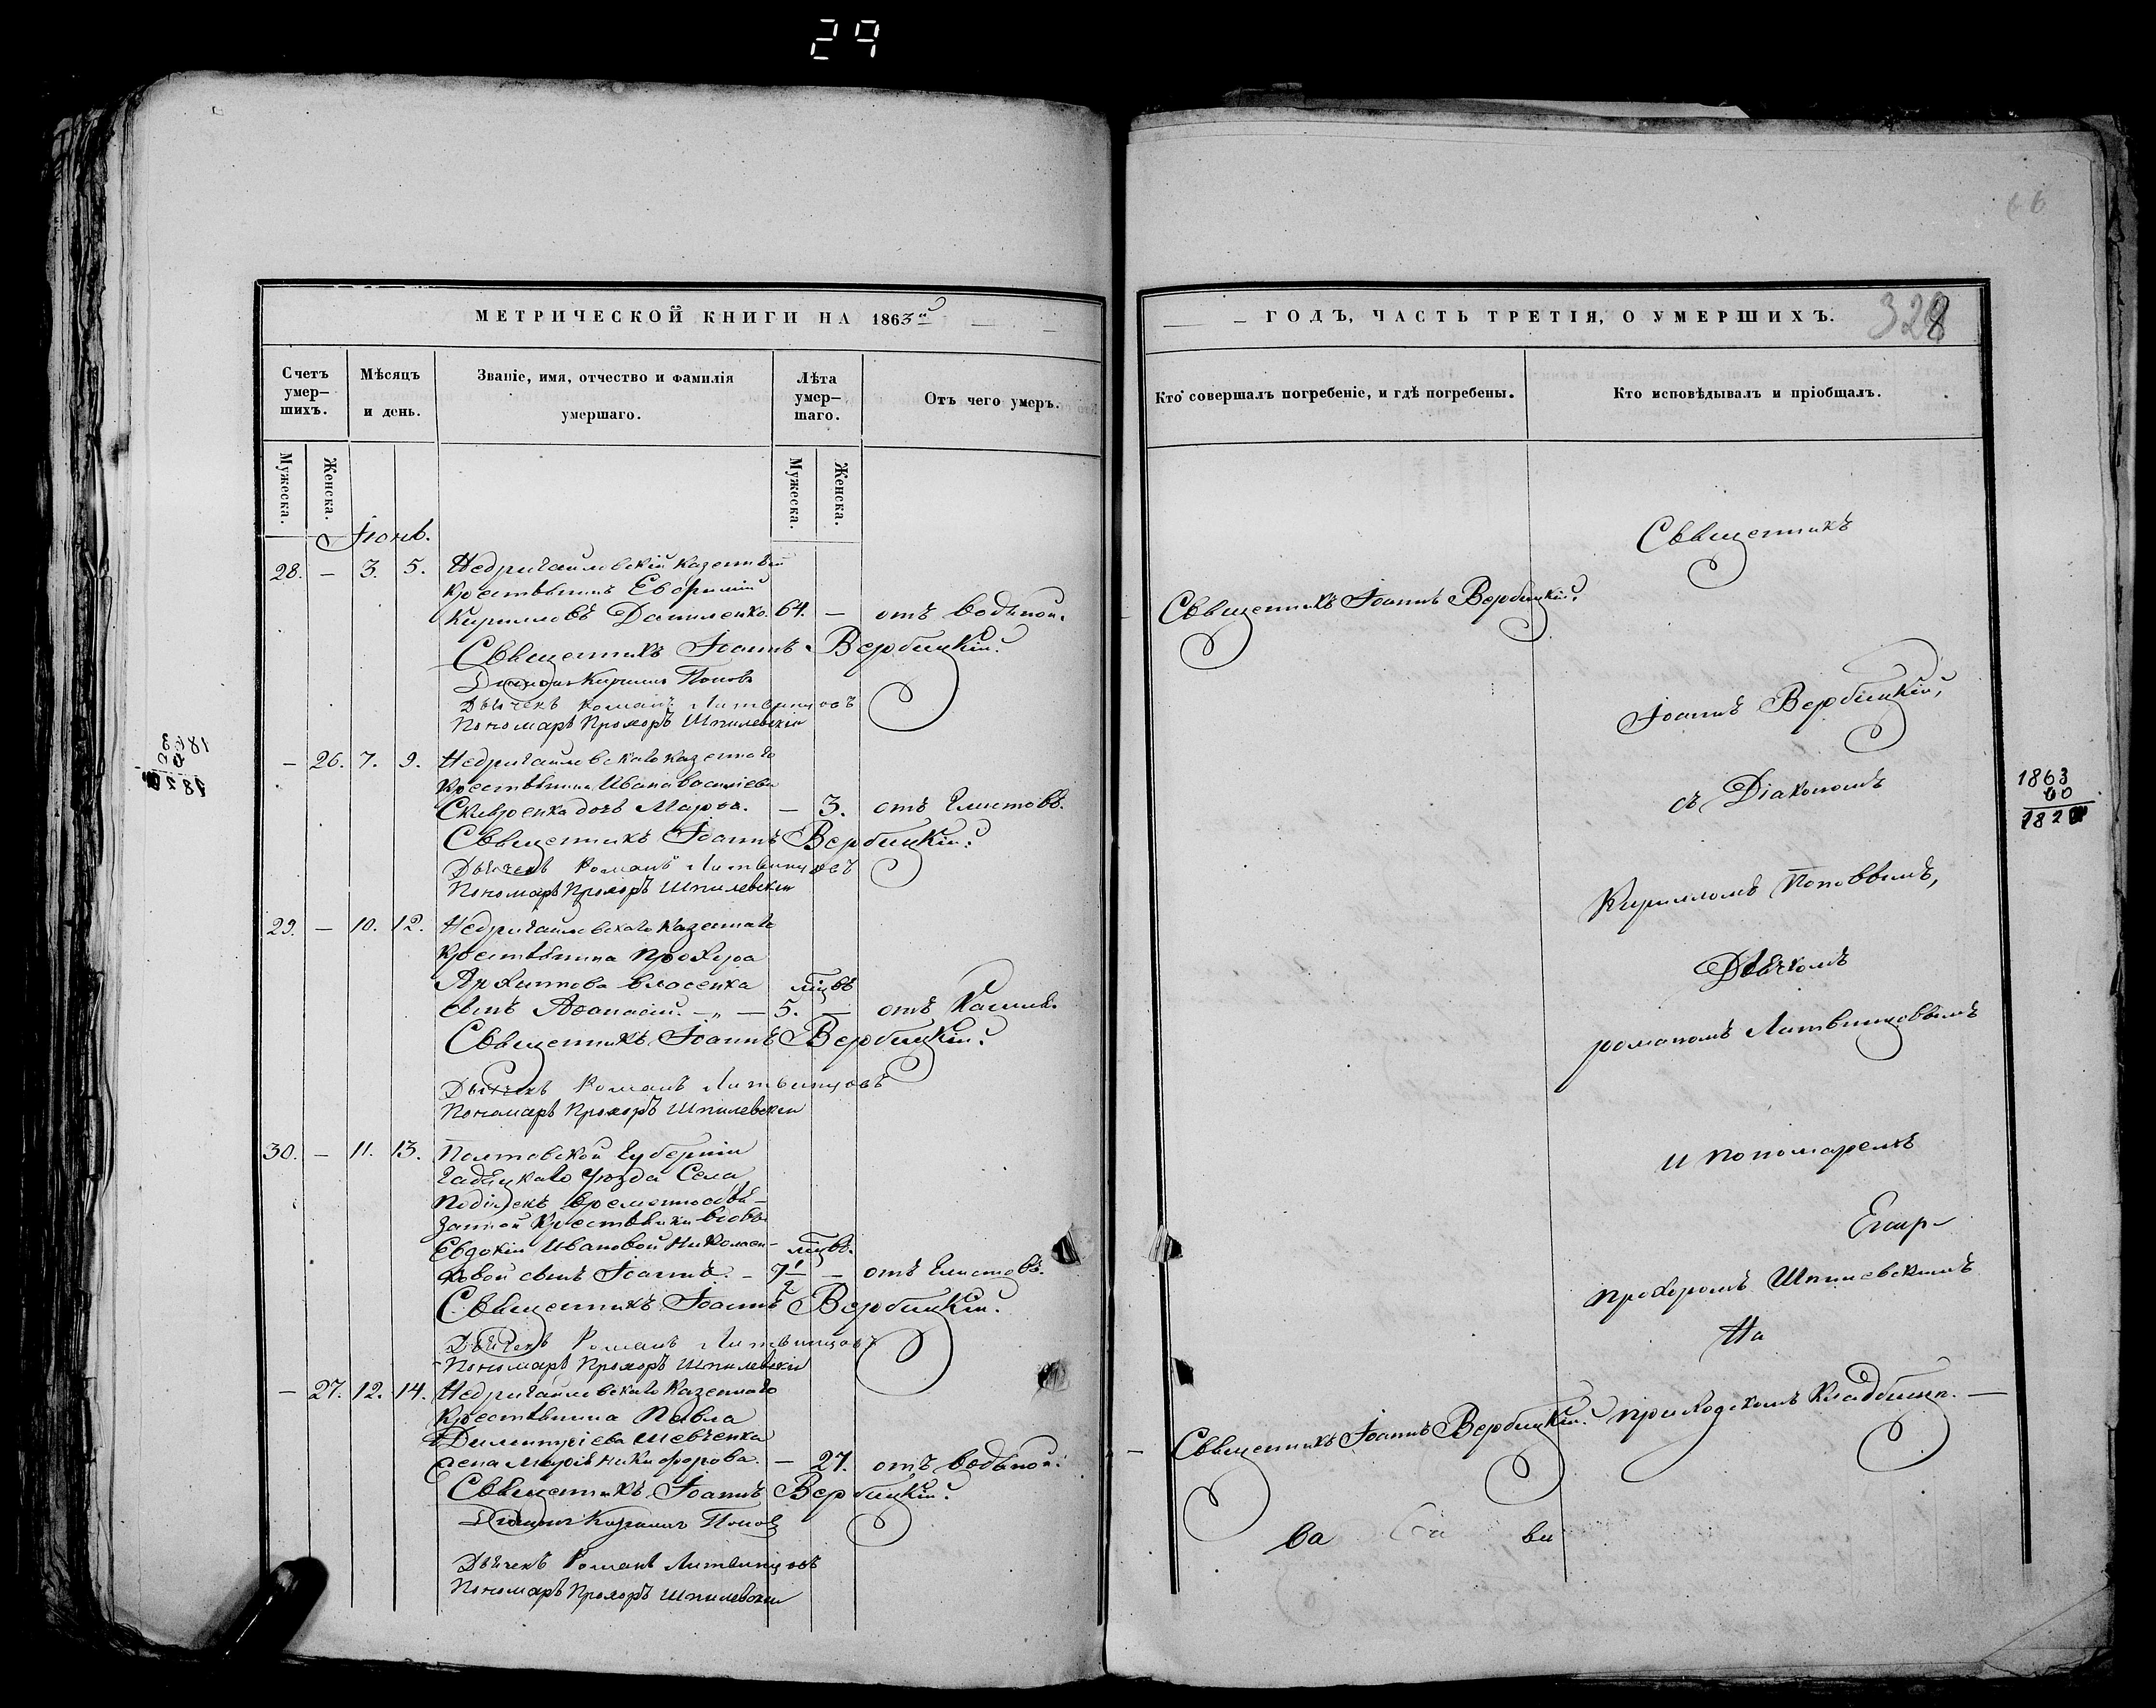 29
МЕТРИЧЕСКОЙ КНИГИ НА 1863й
Счетъ умер-шихъ.
Мѣсяцъ и день.
Званіе, имя, отчество и фамилія умершаго.
Лѣта умер-шаго.
Отъ чего умеръ.
Мужеска. Женска.
Мужеска. Женска.
Іюнь.
28. — 3. 5. Недригайловскій казенный
крестьянинъ Евфимій
Кирилловъ Даниленко. 64. — отъ водяной.
Священникъ Іоаннъ Вербицкій.
Діаконъ Кириллъ Поповъ
Дьячекъ Романъ Литвинцовъ
Пономарь Прохоръ Шпилевскій
— 26. 7. 9. Недригайловскаго казеннаго
крестьянина Ивана Василіева
дочь Марѳа. — 3. отъ глистовъ.
Священникъ Іоаннъ Вербицкій.
Дьячекъ Романъ Литвинцовъ
Пономарь Прохоръ Шпилевскій
29. — 10. 12. Недригайловскаго казеннаго
крестьянина Прохора
Архиппова Власенка мцвъ
сынъ Аѳанасій. — „ — 5. — отъ кашля.
Священникъ Іоаннъ Вербицкій.
Дьячекъ Романъ Литвинцовъ
Пономарь Прохоръ Шпилевскій
30. — 11. 13. Полтавской Губерніи
Гадяцкаго Уѣзда Села
временнообя-
занной крестьянки вдовы
Евдокіи Ивановой Николаен- мцвъ.
ковой сынъ Іоаннъ. — 7 1/2 — отъ глистовъ.
Священникъ Іоаннъ Вербицкій.
Дьячекъ Романъ Литвинцовъ
Пономарь Прохоръ Шпилевскій
— 27. 12. 14. Недригайловскаго казеннаго
крестьянина Павла
Димитріева Шевченка
жена Марія Никифорова. — 27. отъ водяной.
Священникъ Іоаннъ Вербицкій.
Діаконъ Кириллъ Поповъ
Дьячекъ Романъ Литвинцовъ
Пономарь Прохоръ Шпилевскій
66
ГОДЪ, ЧАСТЬ ТРЕТІЯ, О УМЕРШИХЪ.
328
Кто совершалъ погребеніе, и гдѣ погребены.
Кто исповѣдывалъ и пріобщалъ.
Священникъ
Священникъ Іоаннъ Вербицкій.
Іоаннъ Вербицкій,
съ Діакономъ
Кирилломъ Поповымъ,
Дьячкомъ
романомъ Литвинцовымъ
и пономаремъ
Прохоромъ Шпилевскимъ
На
приходскомъ кладбищѣ. —
Священникъ Іоаннъ Вербицкій.
1863
60